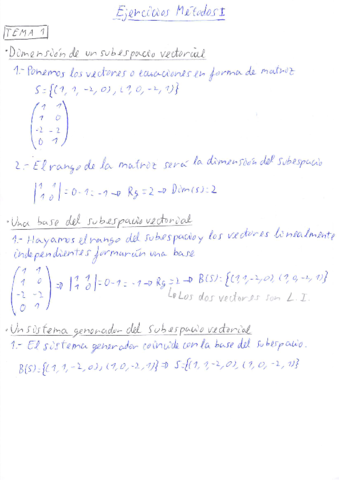 Ejercicios Métodos I
TEMA 1
·Dimensión de un subespacio vectorial
1.- Ponemos los vectores o ecuaciones en forma de matriz
S={(1,1,-2,0),(1,0,-2,1)}
(1 1
1 0
-2 -2
0 1)
2.- El rango de la matriz será la dimensión del subespacio
|1 1
1 0| = 0-1 = -1 → Rg=2 → Dim(S):2
·Una base del subespacio vectorial
1.- Hayamos el rango del subespacio y los vectores linealmente
independientes formarán una base
(1 1
1 0
-2 -2
0 1) ⇒ |1 1
1 0| = 0-1 = -1 → Rg=2 → B(S):{(1,1,-2,0),(1,0,-2,1)}
↳ Los dos vectores son L.I.
·Un sistema generador del subespacio vectorial
1.- El sistema generador coincide con la base del subespacio.
B(S):{(1,1,-2,0),(1,0,-2,1)} ⇒ S={(1,1,-2,0),(1,0,-2,1)}